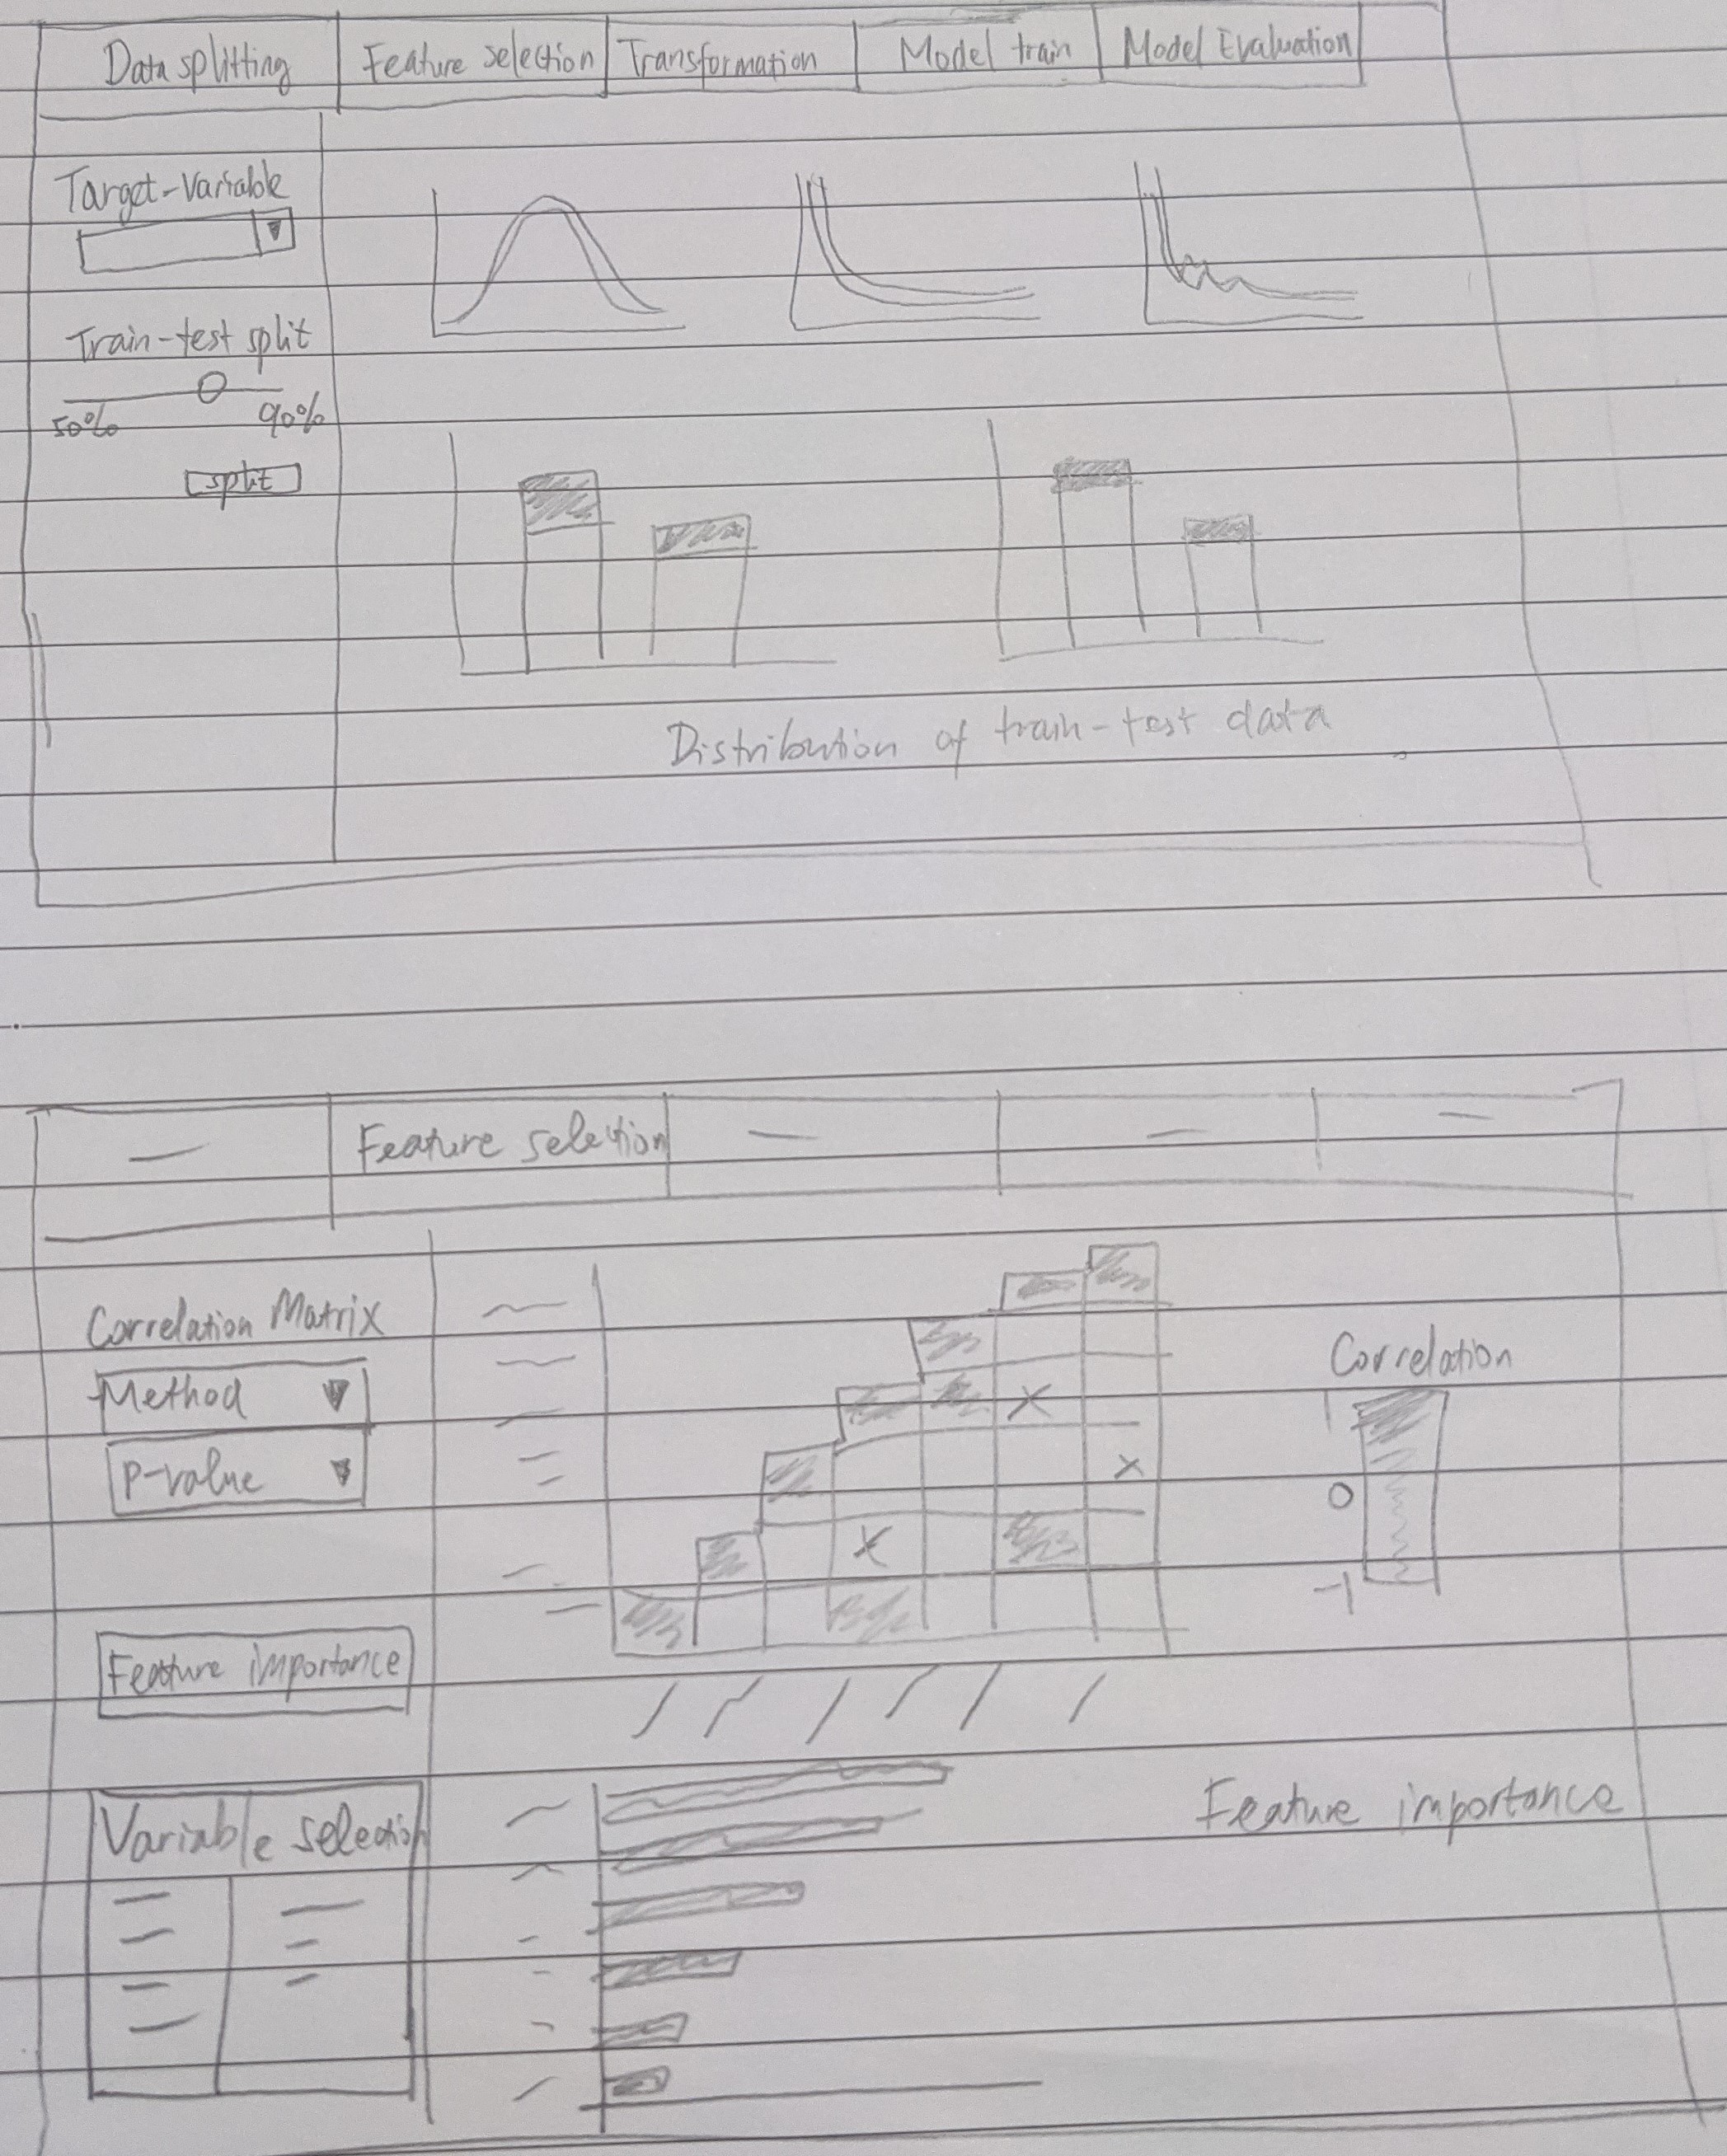 Data splitting
Feature selection
Transformation
Model train
Model Evaluation
Target-Variable
Train-test split
50%
90%
split
Distribution of train-test data
Feature selection
Correlation Matrix
Method
P-value
Feature importance
Variable selection
Correlation
1
0
-1
Feature importance